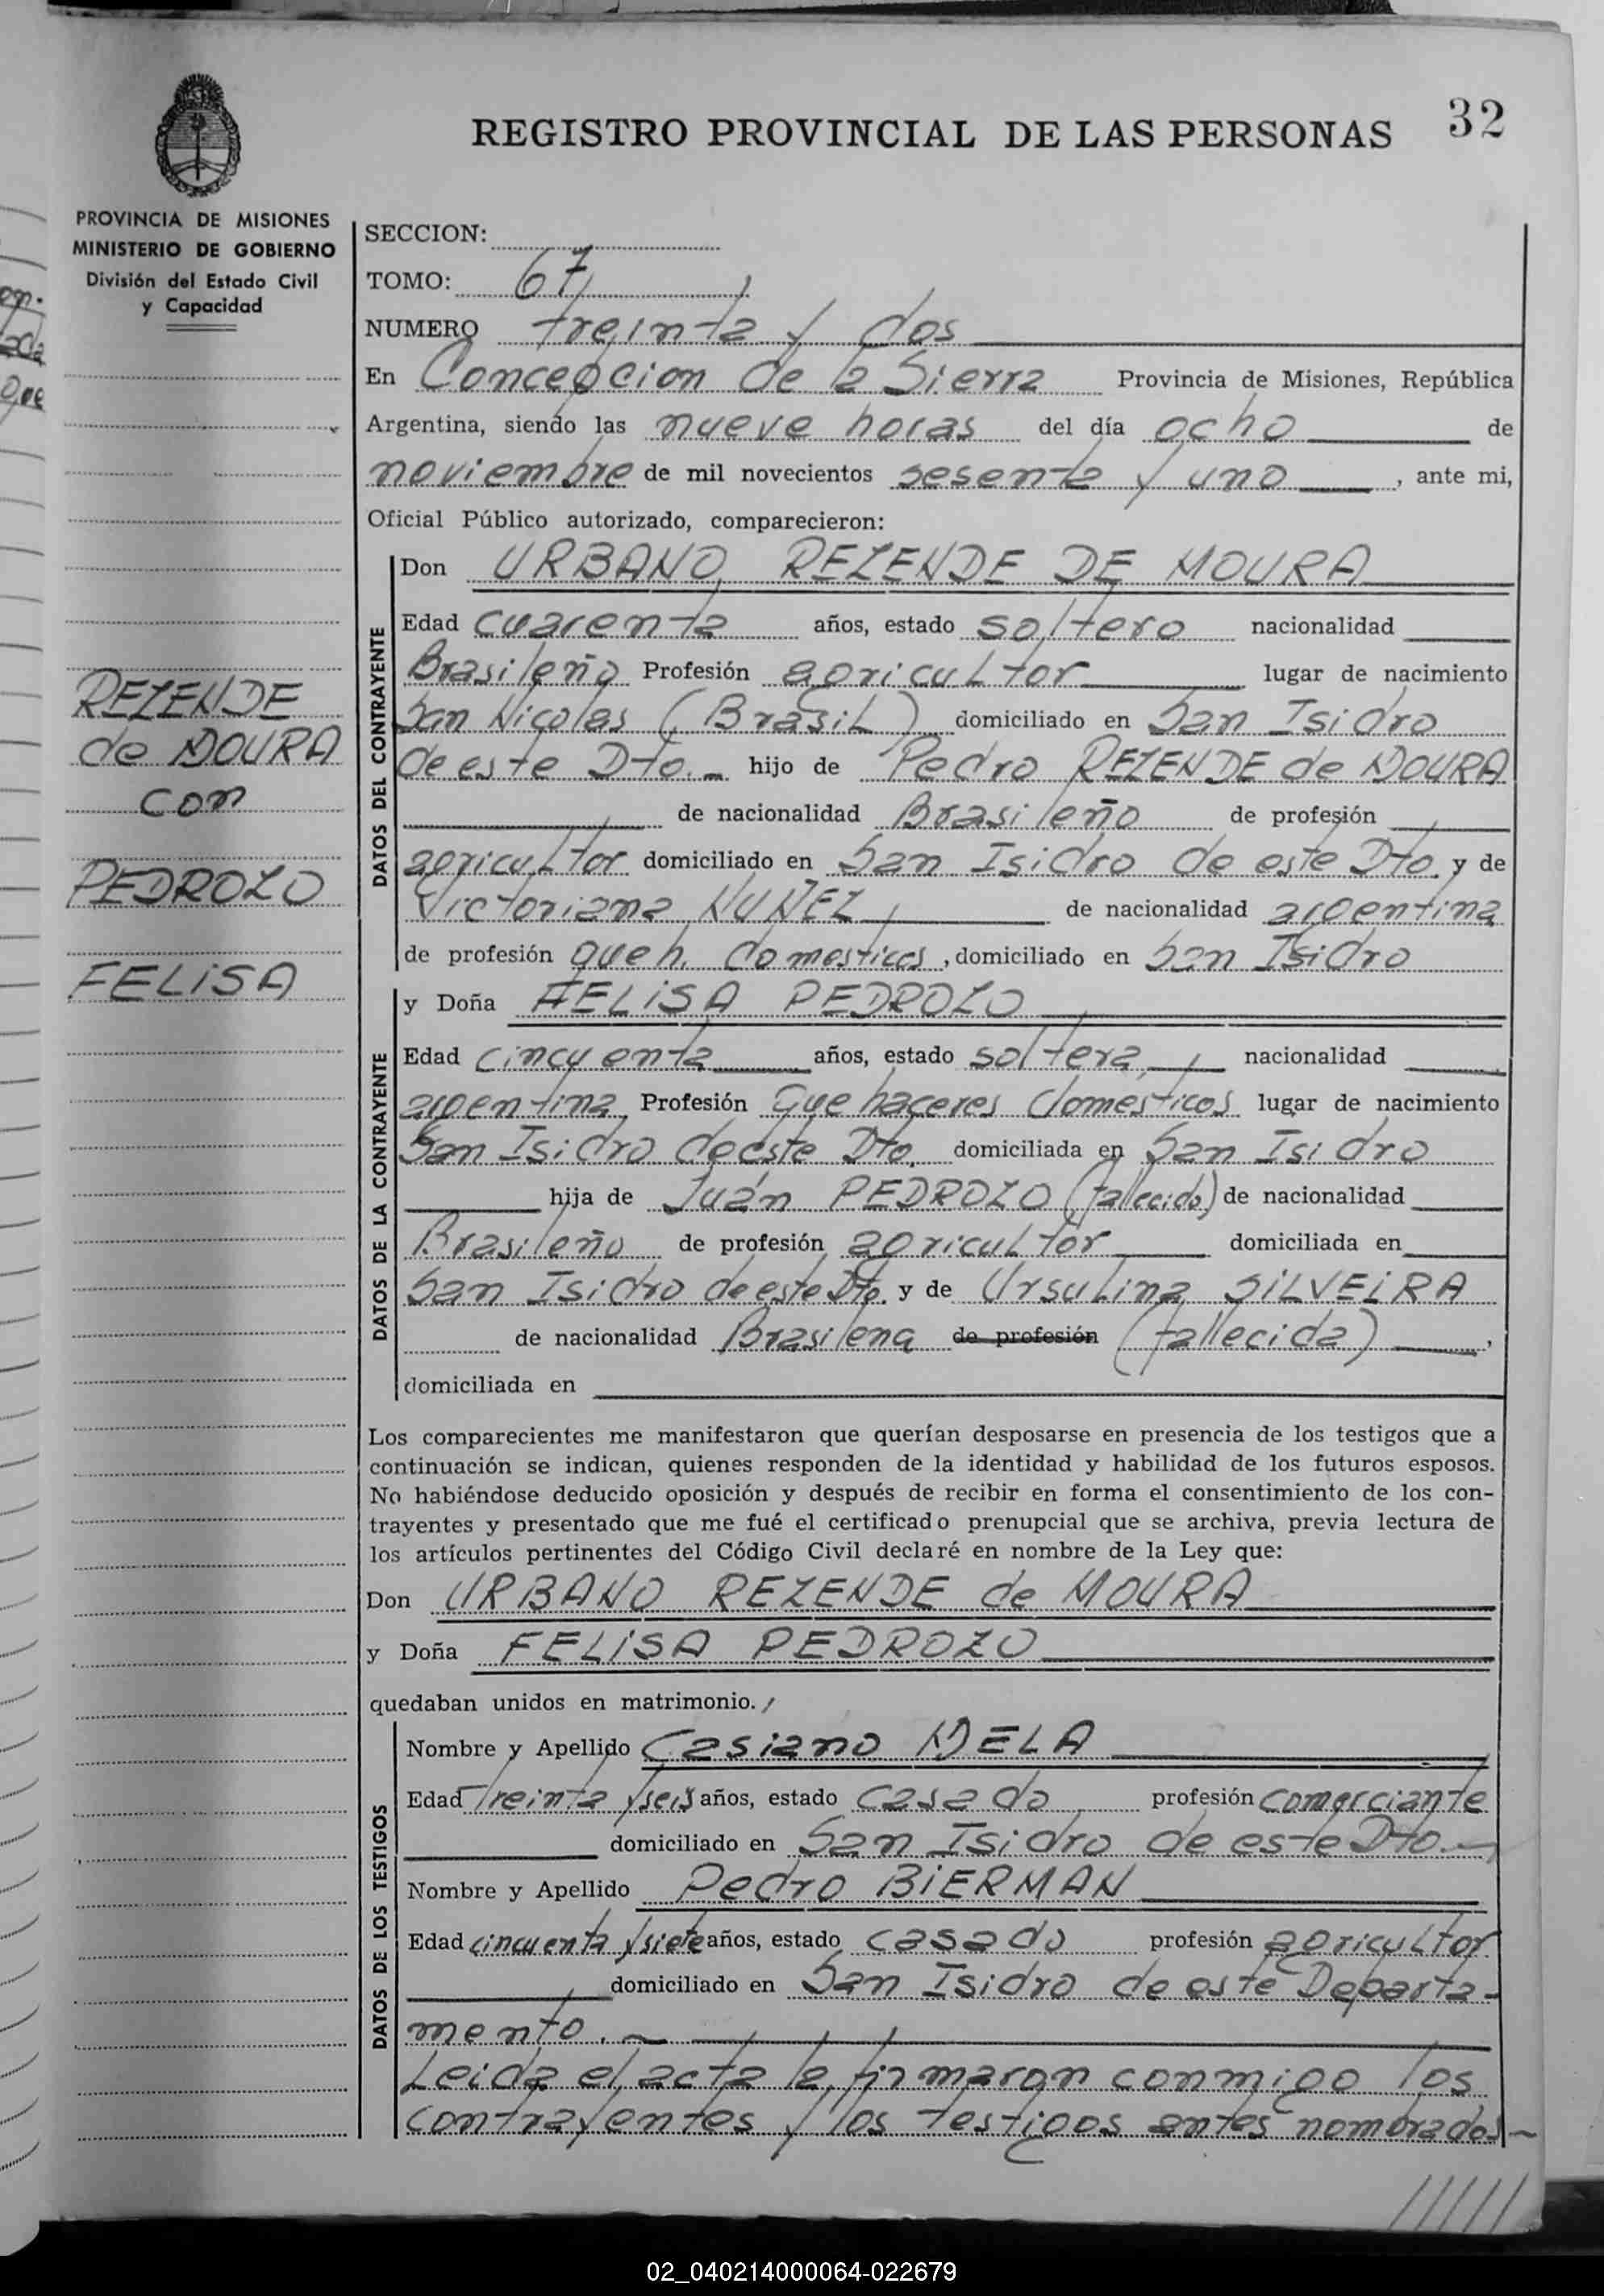 32
REGISTRO PROVINCIAL DE LAS PERSONAS
PROVINCIA DE MISIONES
MINISTERIO DE GOBIERNO
División del Estado Civil
y Capacidad
REZENDE
de MOURA
con
PEDROZO
FELISA
SECCION:
TOMO: 67
NUMERO treinta y dos
En Concepcion de la Sierra Provincia de Misiones, República
Argentina, siendo las nueve horas del día ocho de
noviembre de mil novecientos sesenta y uno, ante mi,
Oficial Público autorizado, comparecieron:
DATOS DEL CONTRAYENTE
Don URBANO REZENDE DE MOURA
Edad cuarenta años, estado soltero nacionalidad
Brasileño Profesión agricultor lugar de nacimiento
San Nicolas (Brasil) domiciliado en San Isidro
de este Dto. hijo de Pedro REZENDE de MOURA
de nacionalidad Brasileño de profesión
agricultor domiciliado en San Isidro de este Dto. y de
Victoriana NUÑEZ de nacionalidad argentina
de profesión que h. domesticos, domiciliado en San Isidro
DATOS DE LA CONTRAYENTE
y Doña FELISA PEDROZO
Edad cincuenta años, estado soltera nacionalidad
argentina Profesión que haceres domesticos lugar de nacimiento
San Isidro de este Dto. domiciliada en San Isidro
hija de Juán PEDROZO (fallecido) de nacionalidad
Brasileño de profesión agricultor domiciliada en
San Isidro de este Dto. y de Ursulina SILVEIRA
de nacionalidad Brasilena de profesión (fallecida),
domiciliada en
Los comparecientes me manifestaron que querían desposarse en presencia de los testigos que a
continuación se indican, quienes responden de la identidad y habilidad de los futuros esposos.
No habiéndose deducido oposición y después de recibir en forma el consentimiento de los con-
trayentes y presentado que me fué el certificado prenupcial que se archiva, previa lectura de
los artículos pertinentes del Código Civil declaré en nombre de la Ley que:
Don URBANO REZENDE de MOURA
y Doña FELISA PEDROZO
quedaban unidos en matrimonio.
DATOS DE LOS TESTIGOS
Nombre y Apellido Casiano MELA
Edad Treinta y seis años, estado casado profesión comerciante
domiciliado en San Isidro de este Dto.
Nombre y Apellido Pedro BIERMAN
Edad cincuenta y siete años, estado casado profesión agricultor
domiciliado en San Isidro de este Departa-
mento.
Leida el acta la firmaron conmigo los
contrayentes y los testigos antes nombrados
02_040214000064-022679